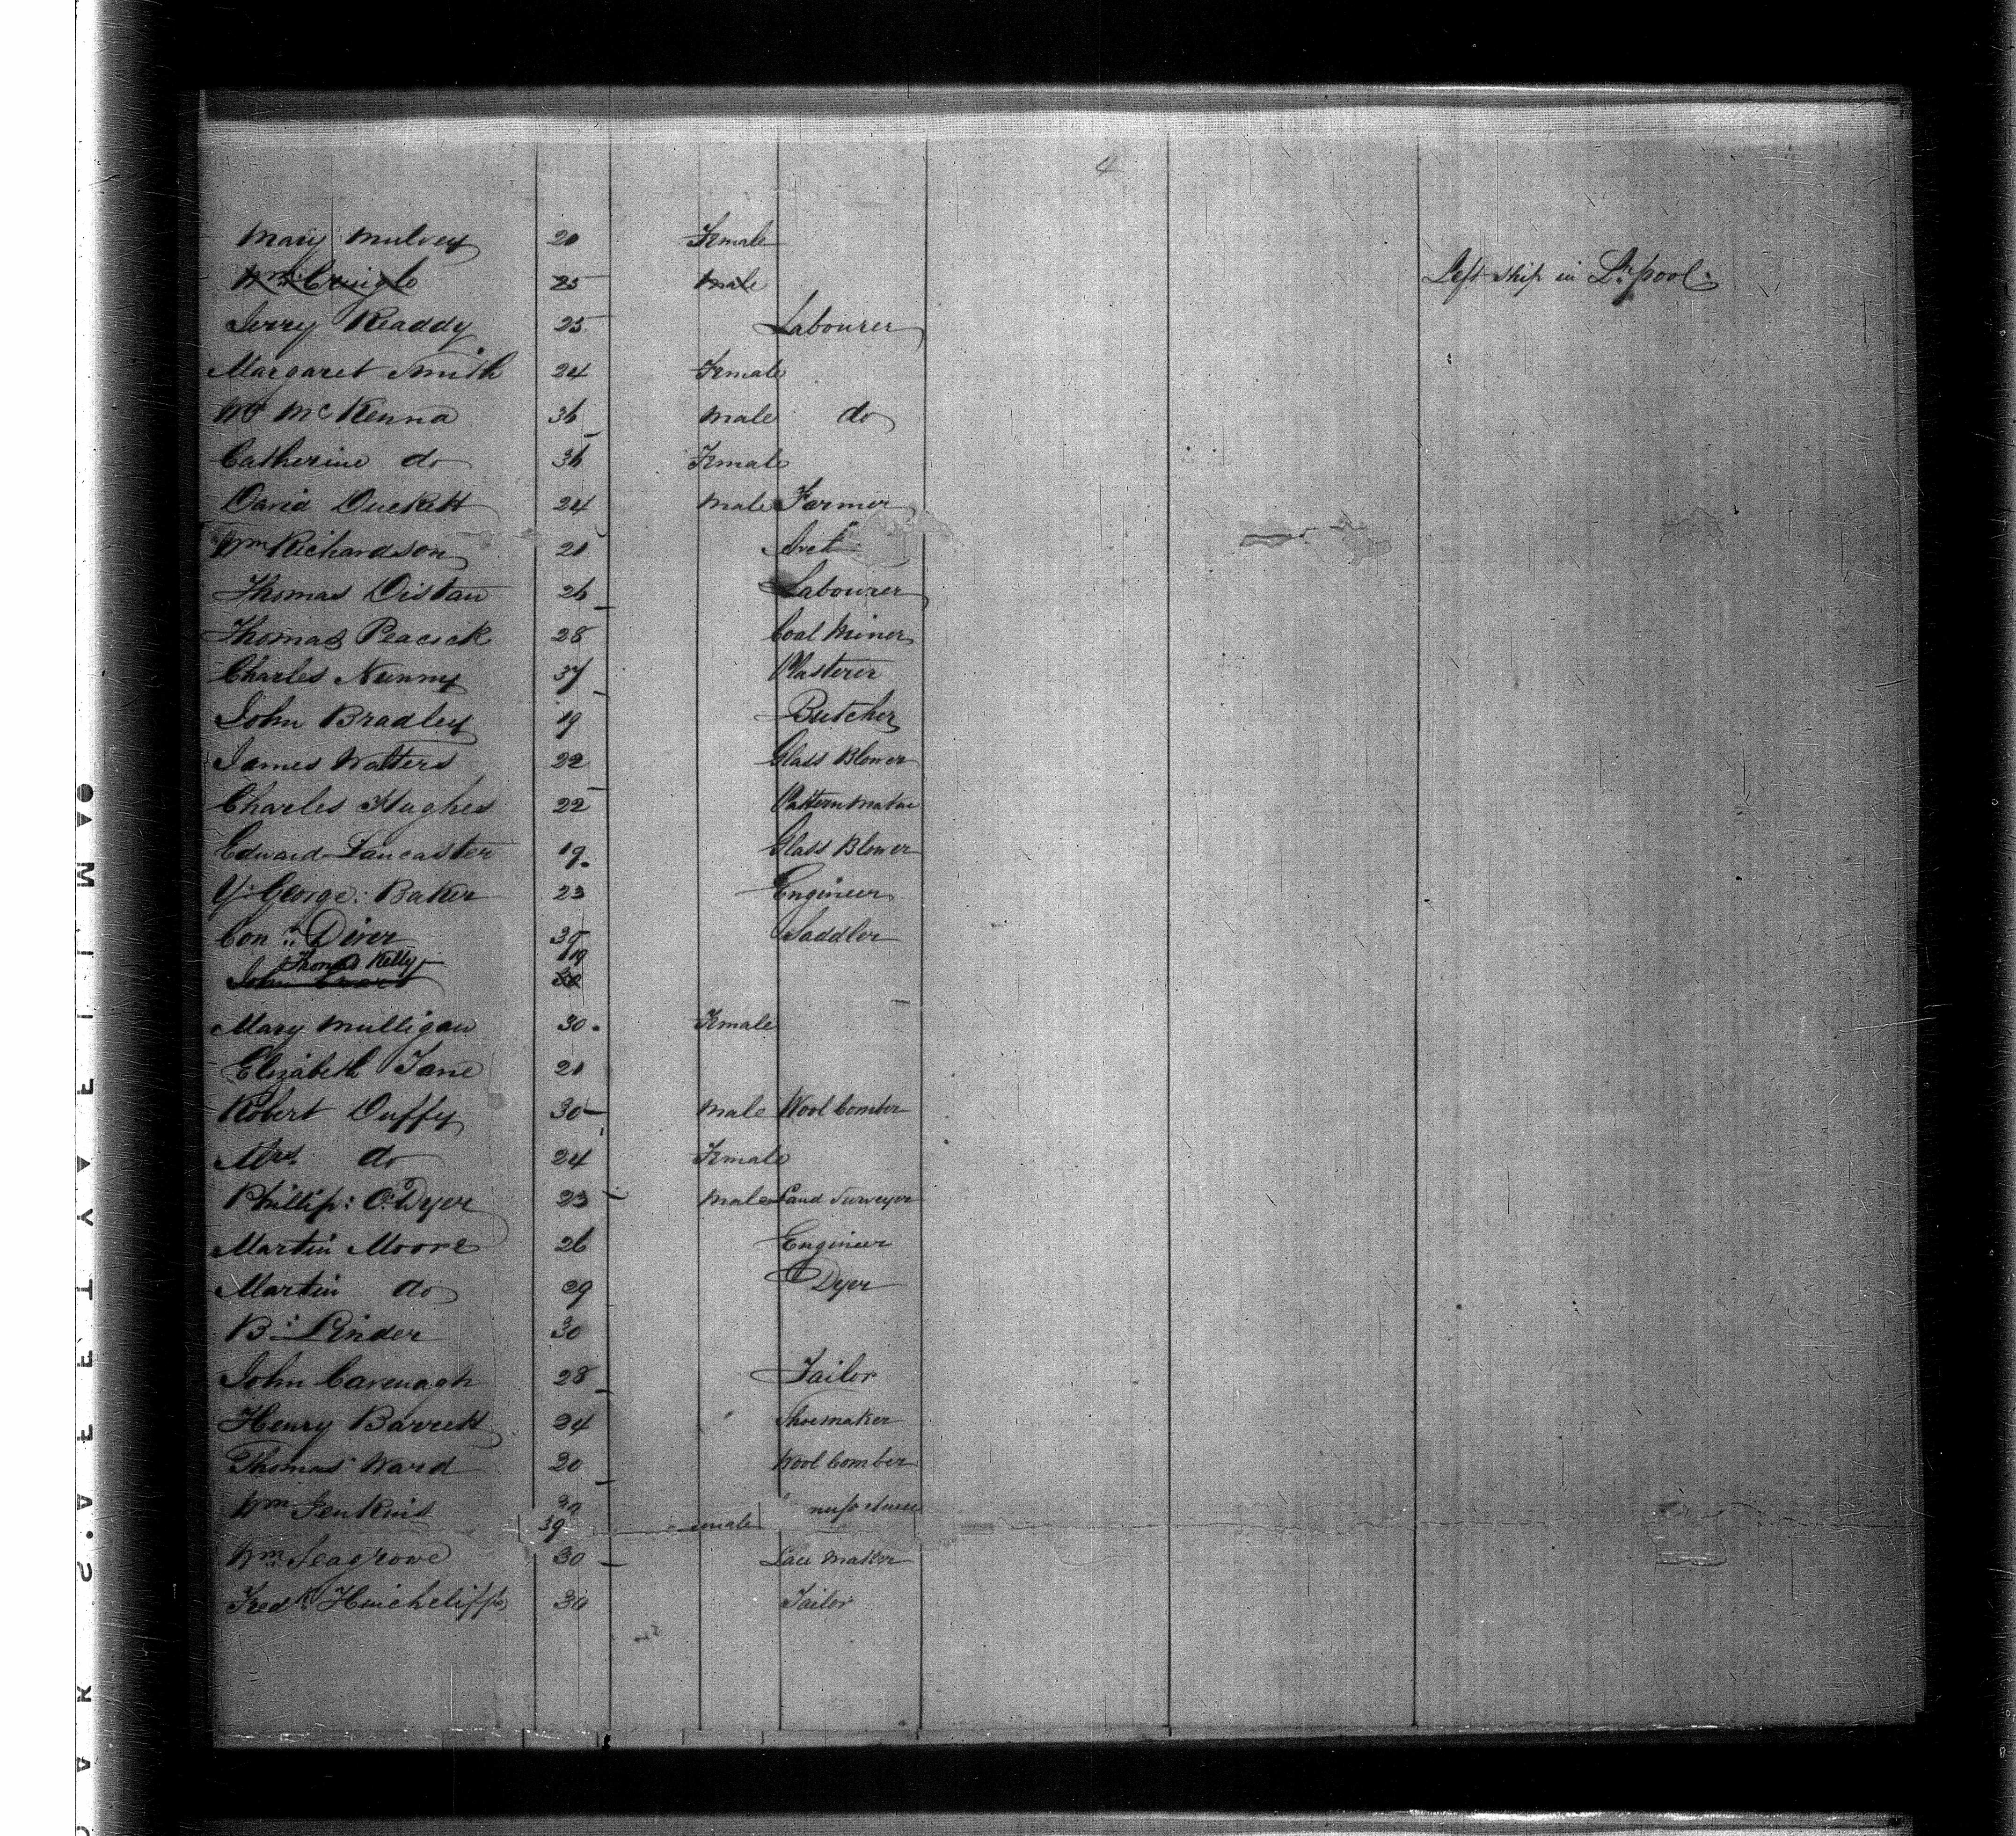 4
Mary Mulvey 20 Female
Wm Cruiglo 25 Male Left ship in L.pool
Jerry Readdy 25 Labourer
Margaret Smith 24 Female
Wm McKenna 36 Male do
Catherine do 36 Female
David Duckett 24 Male Farmer
Wm Richardson 21
Thomas Distan 26 Labourer
Thomas Peacock 28 Coal Miner
Charles Nunny 37 Plasterer
John Bradley 19 Butcher
James Watters 22 Glass Blower
Charles Hughes 22 Pattern Maker
Edward Lancaster 19 Glass Blower
Y. George: Baker 23 Engineer
Con. Diver 39 Saddler
Thomas Kelly 19
John
Mary Mulligan 30 Female
Elizabeth Jane 21
Robert Duffy 30 Male Wool Comber
Mrs. do 24 Female
Phillip: O.Dyer 23 Male Land Surveyor
Martin Moore 26 Engineer
Martin do 29 Dyer
B: Pinder 30
John Cavenagh 28 Tailor
Henry Barrett 24 Shoemaker
Thomas Ward 20 Wool Comber
Wm Jenkins
39 emale
Wm Seagrove 30 Lace Maker
Fredk Hinchcliffe 30 Tailor